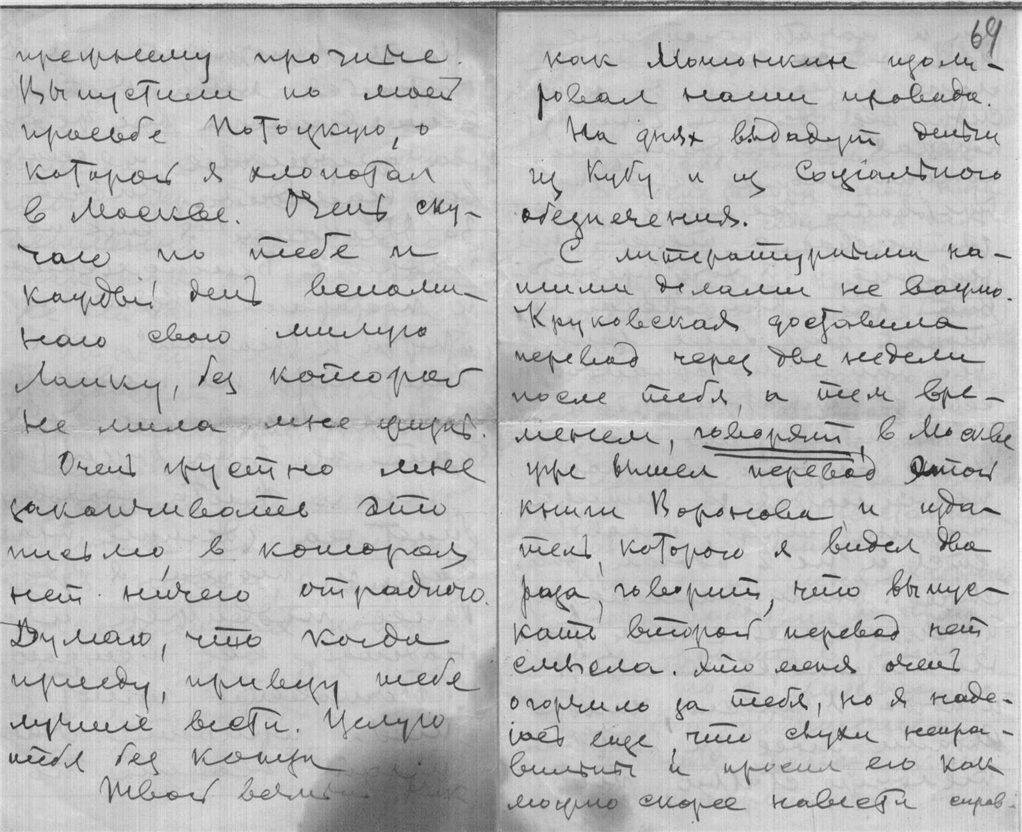 прежнему прочие.
Выпустили по моей
просьбе Потоцкую, о
которой я хлопотал
в Москве. Очень ску-
чаю по тебе и
каждый день вспоми-
наю свою милую
Ланку, без которой
не мила мне жизнь.
Очень грустно мне
заканчивать это
письмо, в котором
нет ничего отрадного.
Думаю, что когда
приеду, привезу тебе
лучшие вести. Целую
тебя без конца
Твой
69
как Мотонкин изоли-
ровал наши провода.
На днях выдадут деньги
из Кубу и из Социального
обезпечения.
С литературными на-
шими делами не важно.
Круковская доставила
перевод через две недели
после тебя, а тем вре-
менем, говорят, в Москве
уже вышел перевод этой
книги Воронова, и изда-
тель, которого я видел два
раза, говорит, что выпус-
кать второй перевод нет
смысла. Это меня очень
огорчило за тебя, но я наде-
юсь еще, что слухи непра-
вильны и просил его как
можно скорее навести справ-